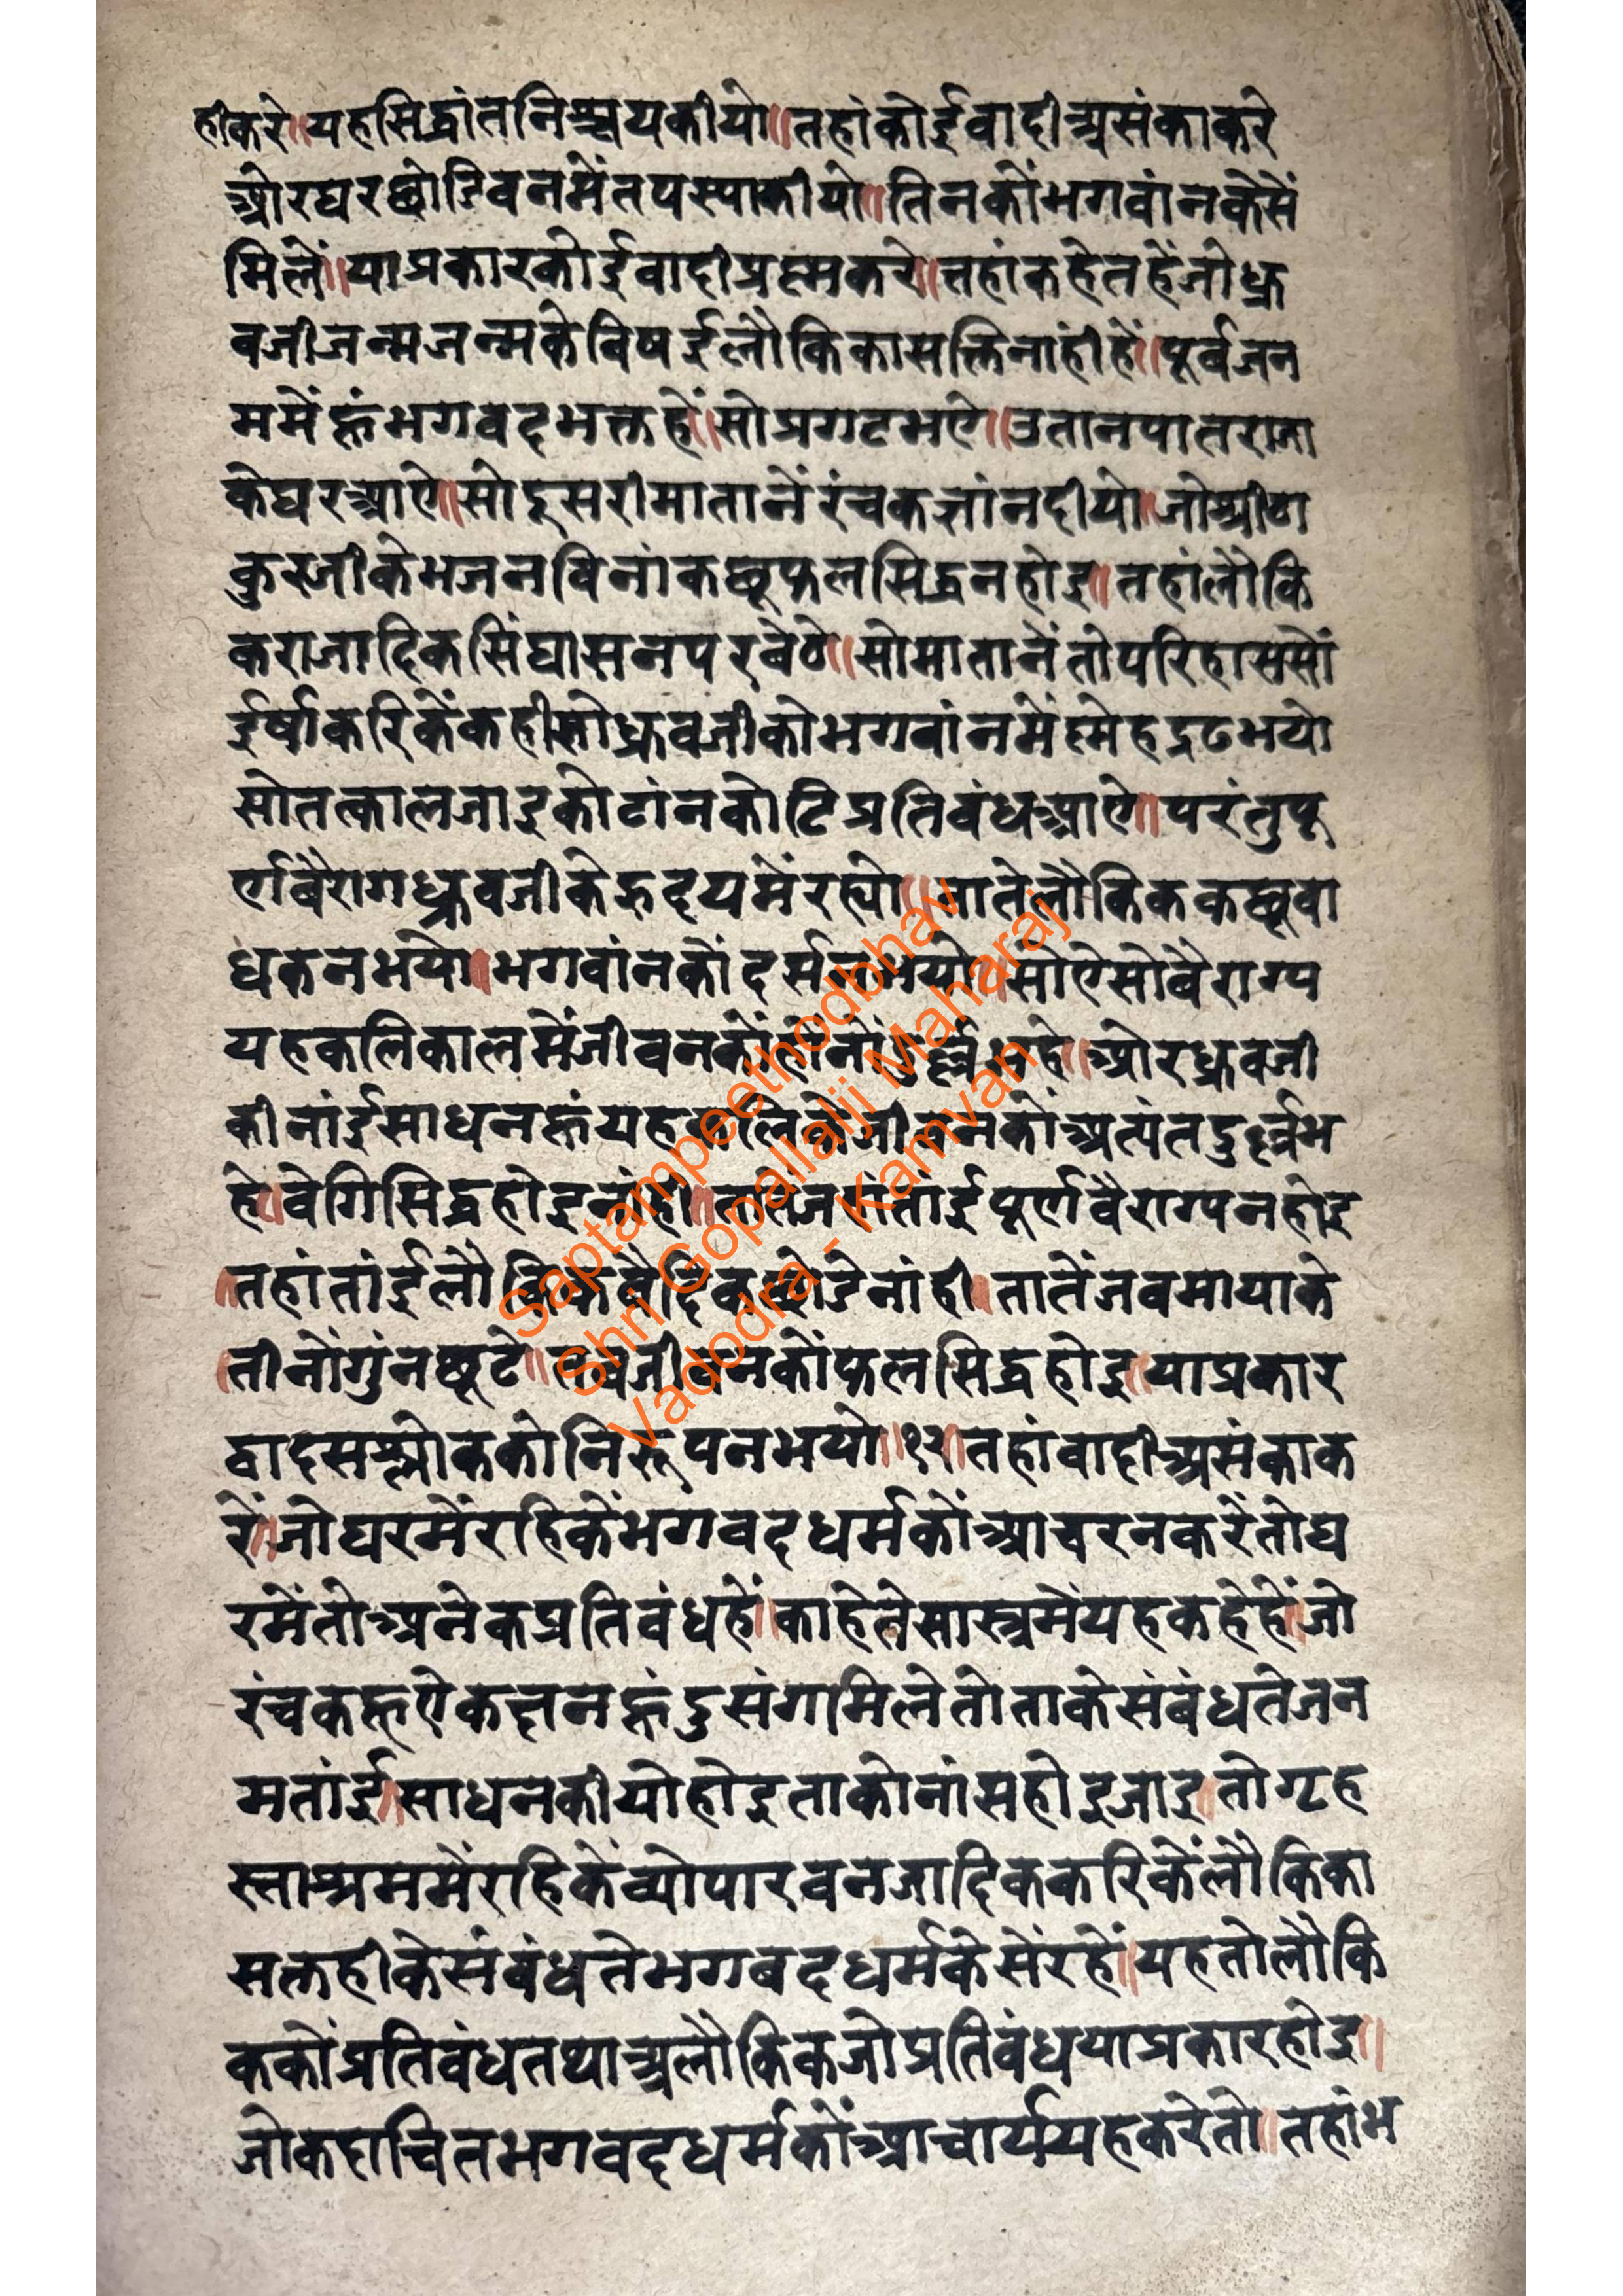 हीकरे॥यहसिद्धांतनिश्चयकीयो॥तहांकोईवादीअसंकाकरे
ओरघरछोडिवनमेंतपस्याकीयो॥तिनकोंभगवांनकेसें
मिलें॥याप्रकारकोईवादीप्रश्नकरे॥तहांकहेतहेंजोध्रु
वजीजन्मजन्मकेविषईलौकिकासक्तिनांहीहें॥पूर्वजन
ममेंहूंभगवदभक्तहें॥सोप्रगटभऐ॥उतानपातराजा
केघरआऐ॥सोदुसरीमातानेंरंचकज्ञांनदीयो॥जोश्रीठा
कुरजीकेभजनविनांकछूफलसिद्धनहोइ॥तहांलौकि
कराजादिकसिंघासनपरबेठे॥सोमातानेंतोपरिहाससों
ईर्षाकरिकेंकहीसोध्रुवजीकोभगवांनमेंस्नेहद्रढभयो
सोतत्कालजाइकोटांनकोटिप्रतिबंधआऐ॥परंतुपू
र्णबैरागध्रुवजीकेहृदयमेंरह्यो॥तातेलौकिककछूवा
धकनभयो॥भगवांनकोंदर्सनभयो॥सोऐसोवैराग्य
यहकलिकालमेंजीवनकोंहोंनोंदुर्ल्लभहे॥ओरध्रुवजी
कीनांईसाधनहूंयहकलिकेजीवनकोंअत्यंतदुर्ल्लभ
हे॥वेगिसिद्धहोइनांही॥तातेजहांतांईपूर्णवैराग्यनहोइ
॥तहांतांईलौकिकवैदिकछोडेनांही॥तातेंजबमायाके
॥तीनोंगुंनछूटे॥तबजीवनकोंफलसिद्धहोइ॥याप्रकार
द्वादसश्लोककोनिरूपनभयो॥१२॥तहांवादीअसंकाक
रें॥जोघरमेंरहिकेंभगवदधर्मकोंआचरनकरेंतोघ
रमेंतोअनेकप्रतिबंधहें॥काहेतेसास्त्रमेंयहकहेहें॥जो
रंचकहूऐकक्षनहूंदुसंगमिलेतोताकेसंबंधतेजन
मतांई॥साधनकीयोहोइताकोनांसहोइजाइ॥तोगृह
स्ताश्रममेंरहिकेंव्योपारवनजादिककरिकेंलौकिका
सक्तहीकेसंबंधतेभगबदधर्मकेसेंरहें॥यहतोलौकि
ककोंप्रतिबंधतथाअलौकिकजोप्रतिबंधयाप्रकारहोइ॥
जोकदाचितभगवदधर्मकोंआचार्ययहकरेतो॥तहांभ
Saptampeethodbhav
Shri Gopallalji Maharaj
Vadodra - Kamvan